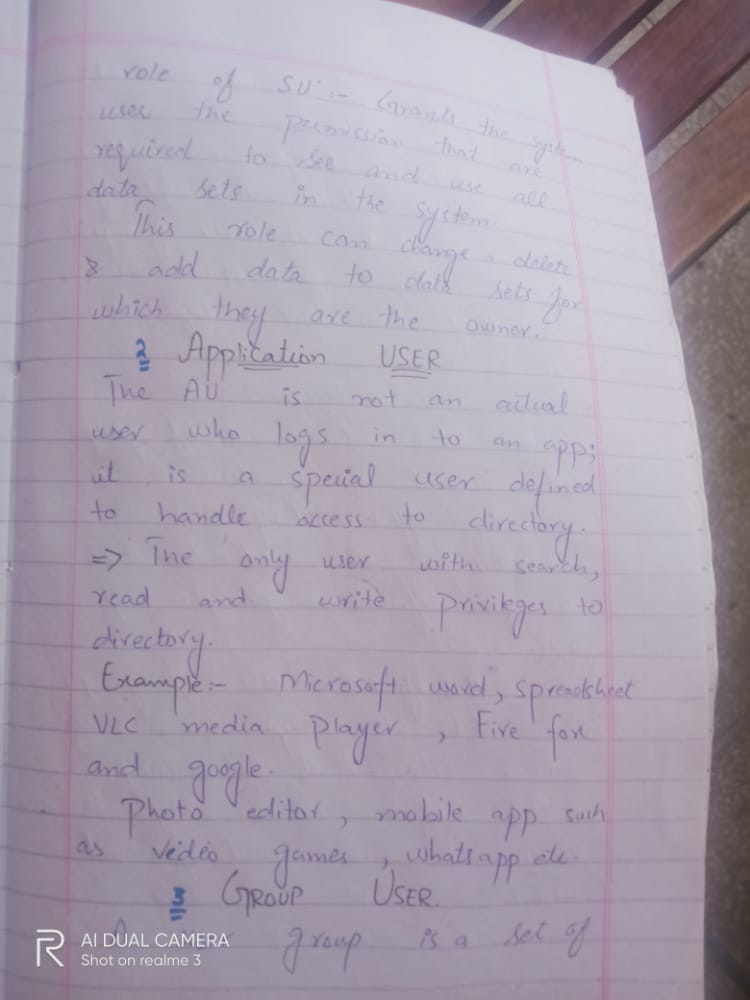 role of SU :- Grants the system
user the permission that are
required to see and use all
data sets in the system.
This role can change, delete
& add data to data sets for
which they are the owner.
2 Application USER
The AU is not an actual
user who logs in to an app;
it is a special user defined
to handle access to directory.
=> The only user with search,
read and write privileges to
directory.
Example :- Microsoft word, spreadsheet
VLC media player, Fire fox
and google.
Photo editor, mobile app such
as vedio games, whatsapp etc.
3 GROUP USER.
A group is a set of
AI DUAL CAMERA
Shot on realme 3